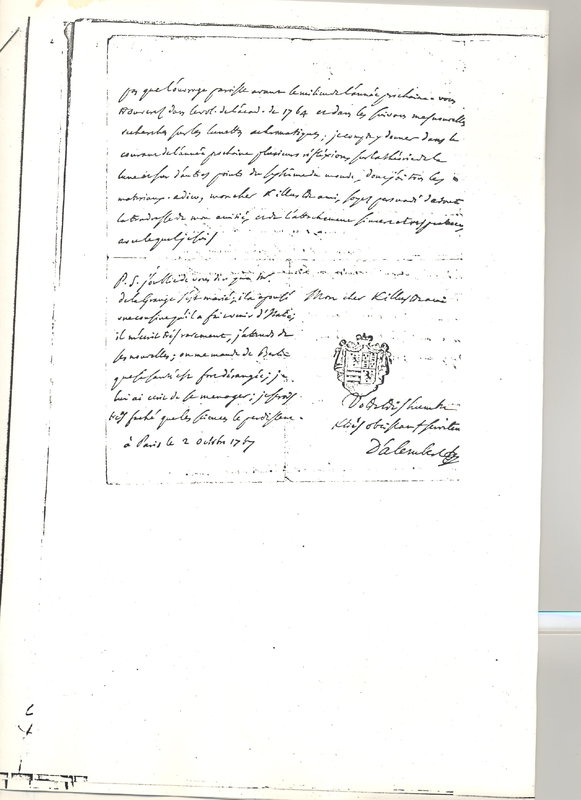 pas que l'ouvrage paroisse avant le milieu de l'année prochaine. vous
trouverés dans le vol. de l'acad. de 1764 et dans les suivans mes nouvelles
recherches sur les lunettes achromatiques; je compte y donner dans le
courant de l'année prochaine plusieurs réflexions sur la théorie de la
lune et sur d'autres points du systême du monde, dont j'ai tous les
materiaux. adieu, mon cher & illustre ami, soyez persuadé d'avance
la tendresse de mon amitié, et de l'attachement sincere et respectueux
avec lequel je suis
P. S. j'oubliois de vous dire que Mr.
de la Grange s'est marié; il a épousé
une cousine qu'il a fait venir d'Italie;
il m'écrit très rarement, j'attends de
ses nouvelles; on me mande de Berlin
que sa santé est fort dérangée; je
lui ai ecrit de se menager; je serois
très faché que les sciences le perdissent.
à Paris le 2 octobre 1767
Mon cher & illustre ami
Votre très humble
& très obéissant serviteur
D'alembert